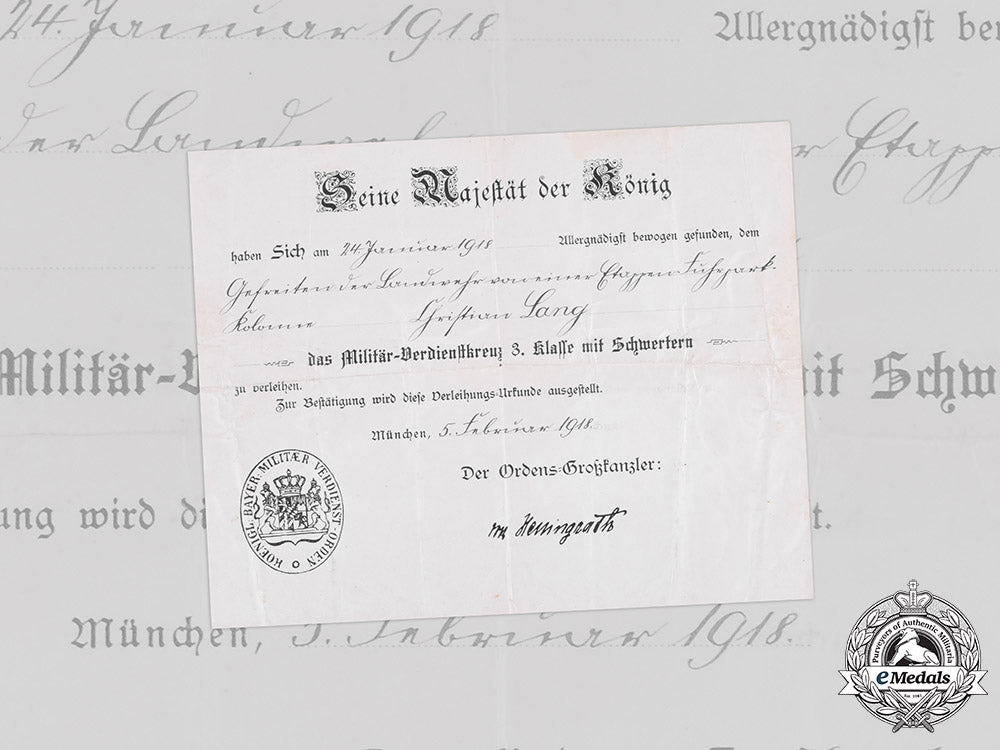 24. Januar 1918 Allergnädigst
der
Seine Majestät der König
haben Sich am 24. Januar 1918 Allergnädigst bewogen gefunden, dem
Gefreiten der Landwehr von einer Etappen Fuhrpark-
Kolonne Christian Lang
das Militär-Verdienstkreuz 3. Klasse mit Schwertern
zu verleihen.
Zur Bestätigung wird diese Verleihungs-Urkunde ausgestellt.
München, 5. Februar 1918.
Der Ordens-Großkanzler:
KOENIGL. BAYER. MILITÆR VERDIENST-ORDEN
Militär-
mit Schw
ung wird di t.
München, 5. Februar 1918.
Purveyors of Authentic Militaria
eMedals